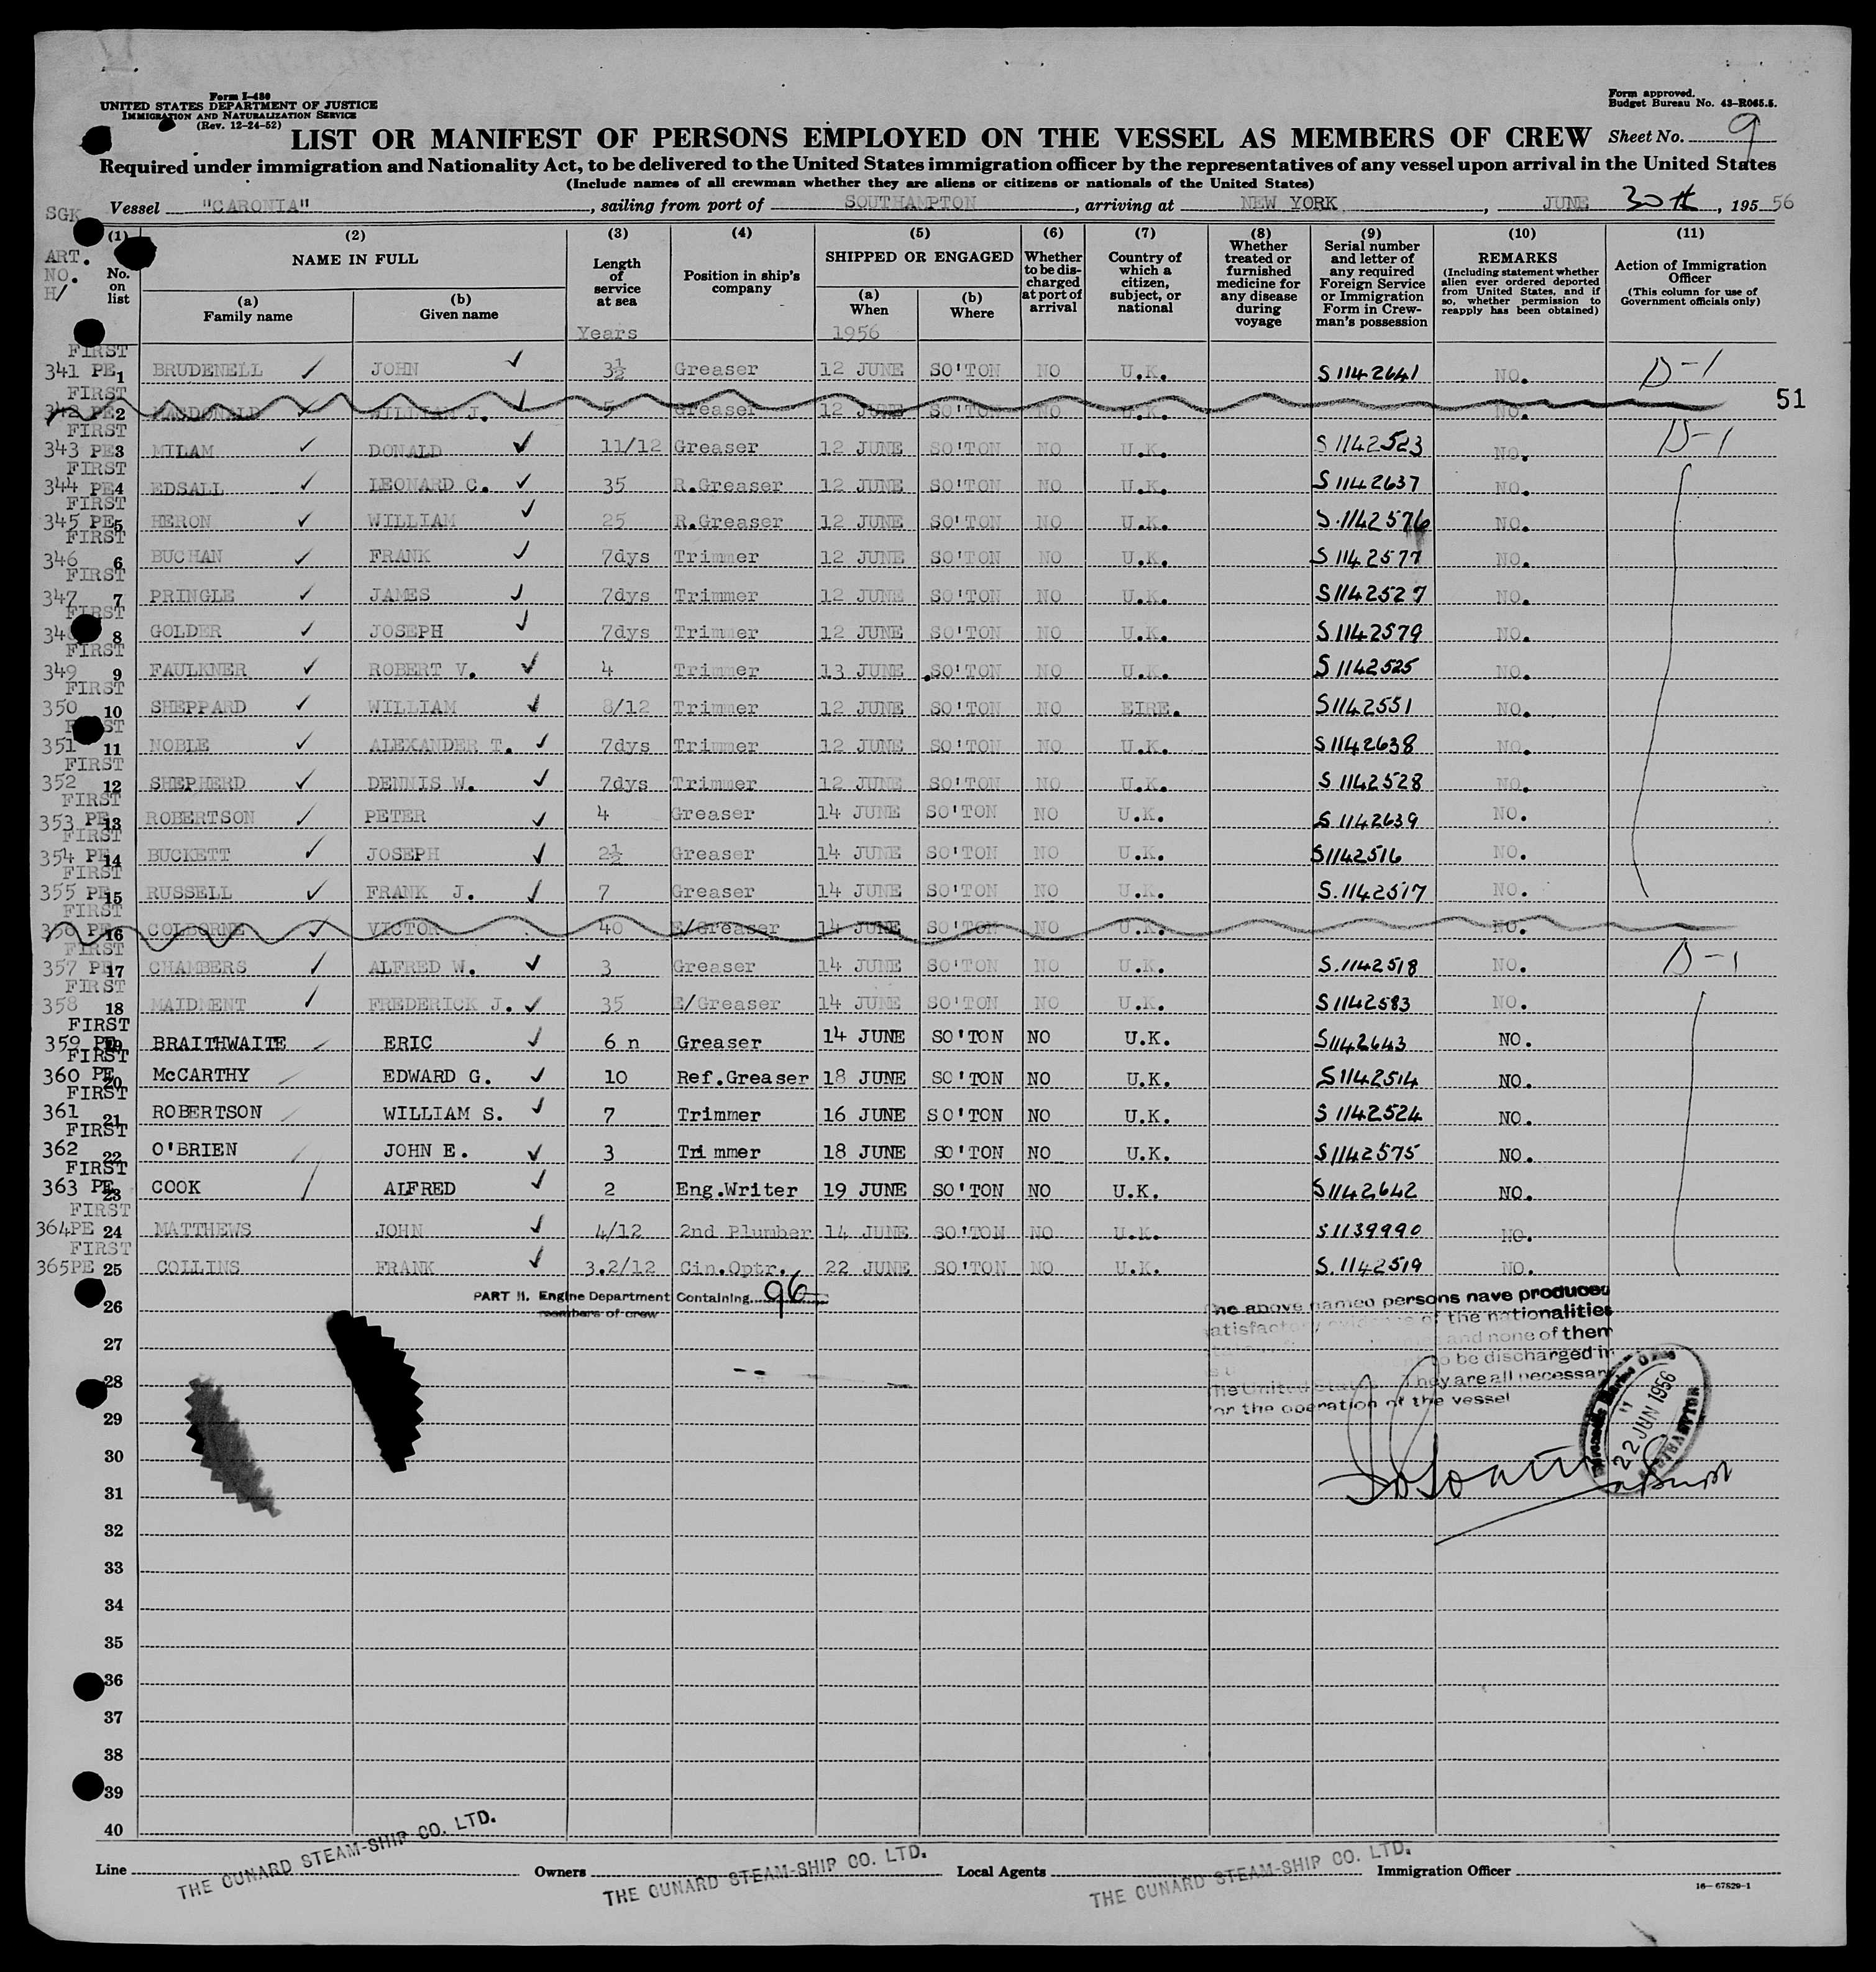 Form I-480
UNITED STATES DEPARTMENT OF JUSTICE
IMMIGRATION AND NATURALIZATION SERVICE
(Rev. 12-24-52)
Form approved.
Budget Bureau No. 43-R065.5.
LIST OR MANIFEST OF PERSONS EMPLOYED ON THE VESSEL AS MEMBERS OF CREW Sheet No. 9
Required under immigration and Nationality Act, to be delivered to the United States immigration officer by the representatives of any vessel upon arrival in the United States
(Include names of all crewman whether they are aliens or citizens or nationals of the United States)
SGK Vessel "CARONIA", sailing from port of SOUTHAMPTON, arriving at NEW YORK, JUNE 30th, 195 56
ART. NO. H/
(1) No. on list
(2) NAME IN FULL
(a) Family name
(b) Given name
(3) Length of service at sea
Years
(4) Position in ship's company
(5) SHIPPED OR ENGAGED
(a) When
1956
(b) Where
(6) Whether to be discharged at port of arrival
(7) Country of which a citizen, subject, or national
(8) Whether treated or furnished medicine for any disease during voyage
(9) Serial number and letter of any required Foreign Service or Immigration Form in Crewman's possession
(10) REMARKS (Including statement whether alien ever ordered deported from United States, and if so, whether permission to reapply has been obtained)
(11) Action of Immigration Officer (This column for use of Government officials only)
FIRST
341 PE 1 BRUDENELL JOHN 3½ Greaser 12 JUNE SO'TON NO U.K. S 1142641 NO. D-1
FIRST
342 PE 2 MACDONALD WILLIAM J. 5 Greaser 12 JUNE SO'TON NO U.K. NO. 51
FIRST
343 PE 3 MILAM DONALD 11/12 Greaser 12 JUNE SO'TON NO U.K. S 1142523 NO. D-1
FIRST
344 PE 4 EDSALL LEONARD C. 35 R.Greaser 12 JUNE SO'TON NO U.K. S 1142637 NO.
FIRST
345 PE 5 HERON WILLIAM 25 R.Greaser 12 JUNE SO'TON NO U.K. S.1142576 NO.
FIRST
346 6 BUCHAN FRANK 7dys Trimmer 12 JUNE SO'TON NO U.K. S 1142577 NO.
FIRST
347 7 PRINGLE JAMES 7dys Trimmer 12 JUNE SO'TON NO U.K. S1142527 NO.
FIRST
34 8 GOLDER JOSEPH 7dys Trimmer 12 JUNE SO'TON NO U.K. S 1142579 NO.
FIRST
349 9 FAULKNER ROBERT V. 4 Trimmer 13 JUNE SO'TON NO U.K. S 1142525 NO.
FIRST
350 10 SHEPPARD WILLIAM 8/12 Trimmer 12 JUNE SO'TON NO EIRE. S1142551 NO.
FIRST
351 11 NOBLE ALEXANDER T. 7dys Trimmer 12 JUNE SO'TON NO U.K. S1142638 NO.
FIRST
352 12 SHEPHERD DENNIS W. 7dys Trimmer 12 JUNE SO'TON NO U.K. S 1142528 NO.
FIRST
353 PE 13 ROBERTSON PETER 4 Greaser 14 JUNE SO'TON NO U.K. S 1142639 NO.
FIRST
354 PE 14 BUCKETT JOSEPH 2½ Greaser 14 JUNE SO'TON NO U.K. S1142516 NO.
FIRST
355 PE 15 RUSSELL FRANK J. 7 Greaser 14 JUNE SO'TON NO U.K. S.1142517 NO.
FIRST
356 PE 16 COLBORNE VICTOR 40 E/Greaser 14 JUNE SO'TON NO U.K. NO.
FIRST
357 PE 17 CHAMBERS ALFRED W. 3 Greaser 14 JUNE SO'TON NO U.K. S.1142518 NO. D-1
FIRST
358 18 MAIDMENT FREDERICK J. 35 E/Greaser 14 JUNE SO'TON NO U.K. S1142583 NO.
FIRST
359 PE 19 BRAITHWAITE ERIC 6 n Greaser 14 JUNE SO'TON NO U.K. S1142643 NO.
FIRST
360 PE 20 McCARTHY EDWARD G. 10 Ref.Greaser 18 JUNE SO'TON NO U.K. S1142514 NO.
FIRST
361 21 ROBERTSON WILLIAM S. 7 Trimmer 16 JUNE SO'TON NO U.K. S 1142524 NO.
FIRST
362 22 O'BRIEN JOHN E. 3 Trimmer 18 JUNE SO'TON NO U.K. S1142575 NO.
FIRST
363 PE 23 COOK ALFRED 2 Eng.Writer 19 JUNE SO'TON NO U.K. S1142642 NO.
FIRST
364PE 24 MATTHEWS JOHN 4/12 2nd Plumber 14 JUNE SO'TON NO U.K. S1139990 NO.
FIRST
365PE 25 COLLINS FRANK 3.2/12 Cin.Optr. 22 JUNE SO'TON NO U.K. S.1142519 NO.
PART II. Engine Department Containing 96
members of crew
The above named persons have produced
satisfactory evidence of the nationalities
and none of them
to be discharged in
the United States They are all necessary
for the operation of the vessel
22 JUN 1956
26
27
28
29
30
31
32
33
34
35
36
37
38
39
40
Line THE CUNARD STEAM-SHIP CO. LTD. Owners THE CUNARD STEAM-SHIP CO. LTD. Local Agents THE CUNARD STEAM-SHIP CO. LTD. Immigration Officer
16—67829-1